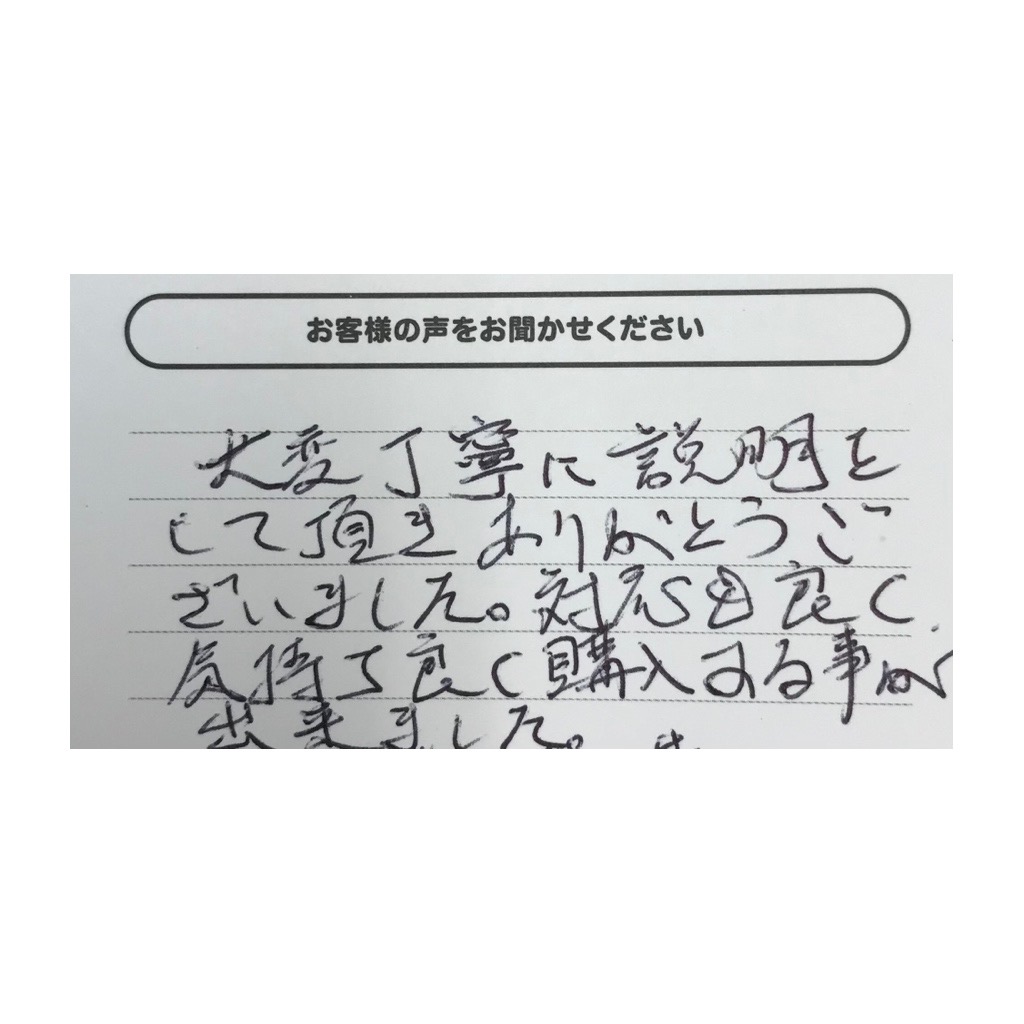 お客様の声をお聞かせください
大変丁寧に説明を
して頂きありがとうご
ざいました。対応も良く
気持ち良く購入する事が
出来ました。